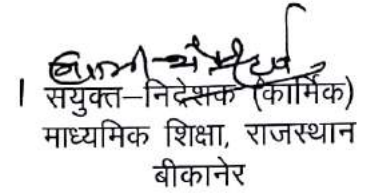 सयुक्त–निदेशक (कार्मिक)
माध्यमिक शिक्षा, राजस्थान
बीकानेर